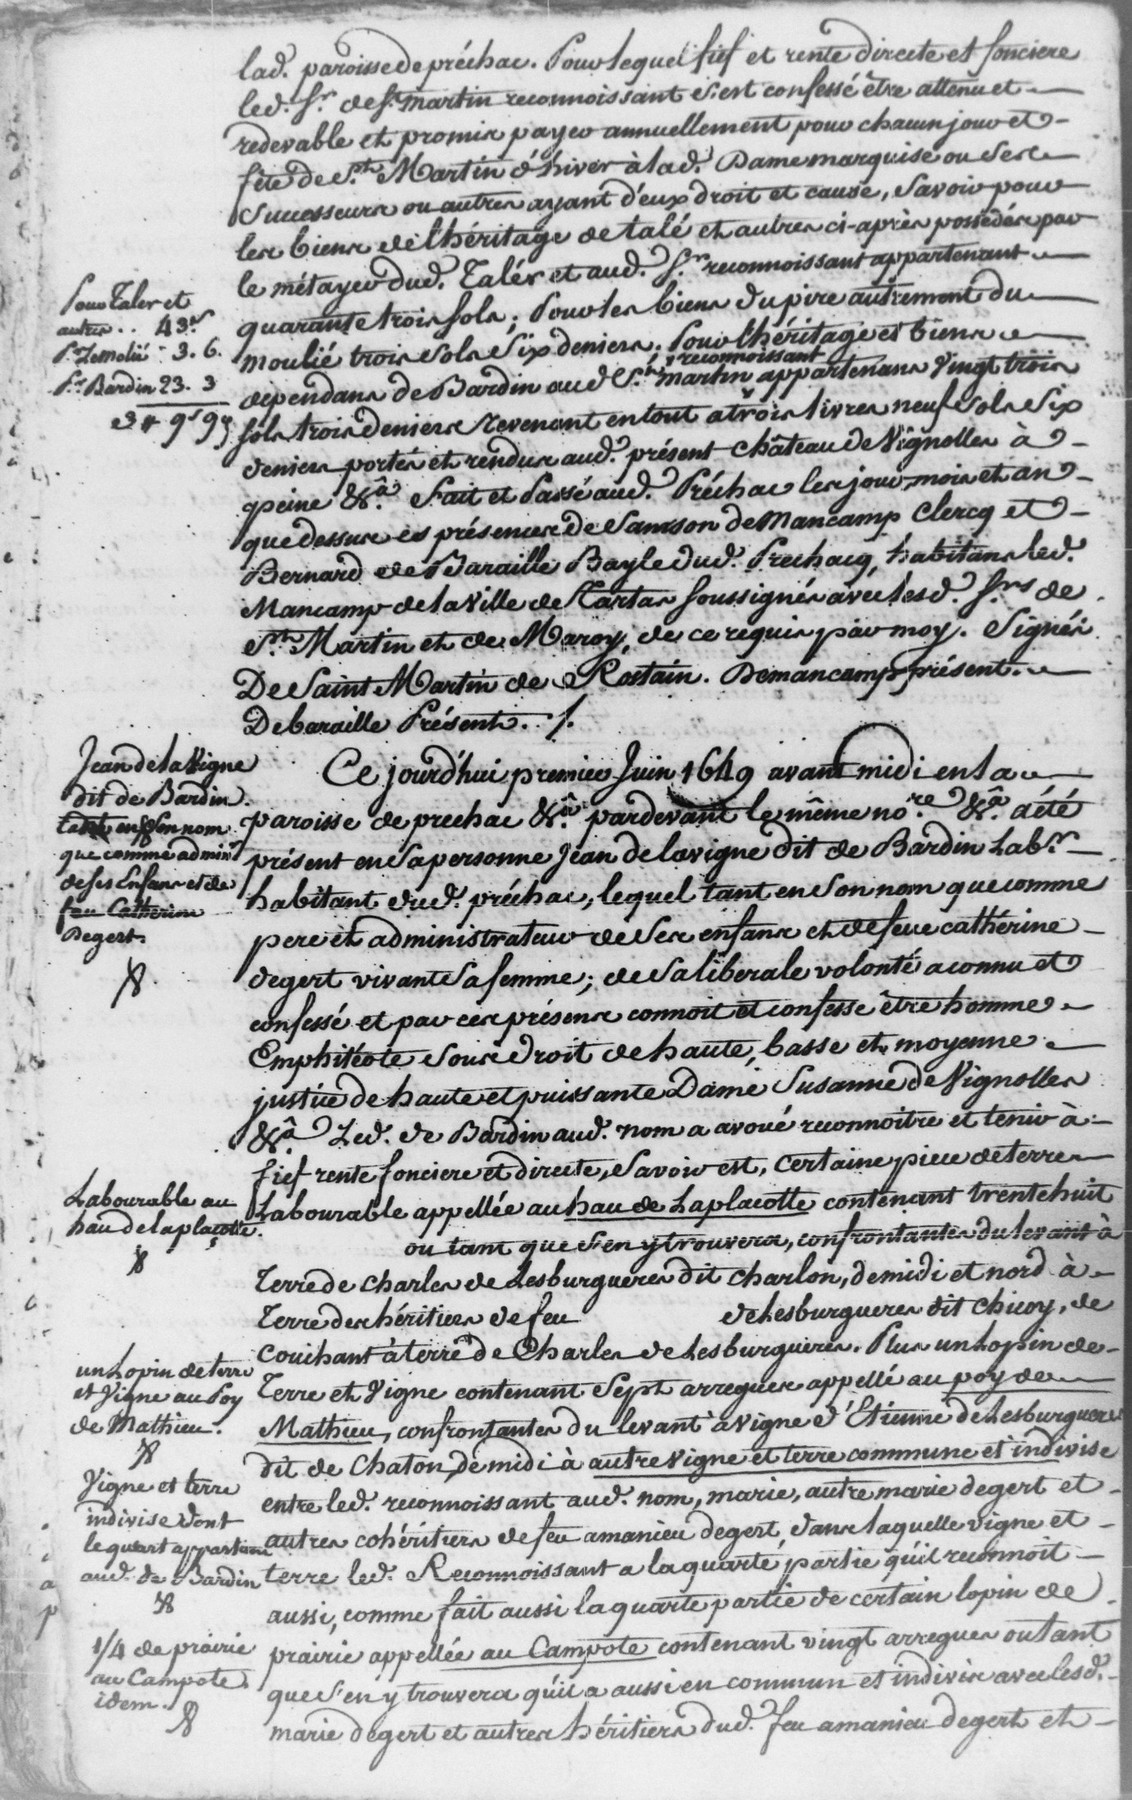 lad. paroisse de préchac. Pour lequel fief et rente directe et fonciere
led. Sr. de St. martin reconnoissant s'est confessé être attenu et
redevable et promis payer annuellement pour chacun jour et
fête de St. Martin d'hiver à lad. Dame marquise ou ses
Successeurs ou autres ayant d'eux droit et cause, Savoir pour
les biens de l'héritage de talé et autres ci-après possedés par
le métayer dud. Talér et aud. Sr. reconnoissant appartenant
Pour Taler et
autres .. 43s
P. Lemolié - 3. 6.
Pr. Bardin 23. 3
3 ₶ 9s 9d
quarante trois sols; Pour les biens du pire autrement du
moulié trois sols Six deniers. Pour l'héritage et biens
dependans de Bardin aud St. martin reconnoissant appartenans Vingt trois
sols trois deniers revenant en tout a trois livres neuf Sols Six
deniers portés et rendus aud. présent château de Vignolles à
peine &a. Fait et Passé aud. Préchac les jour, mois et an
que dessus es présences de Samson de Mancamp Clercq et
Bernard de Baraille Bayle dud. Prechacq, habitans led.
Mancamp de la Ville de Tartas soussignés avec lesd. Srs de
St. Martin et de Maroy, de ce requis par moy. Signés
De Saint Martin de Rostain. Demancamp présent.
Debaraille Présent. /.
Jean de la Vigne
dit de Bardin
tant en Son nom
que comme admin.
de ses Enfans et de
feu Catherine
Degert.
Ce jourd'hui premier Juin 1649 avant midi en la
paroisse de prechac &a. pardevant le même nore. &a. a été
présent en Sa personne Jean delavigne dit de Bardin Labr.
habitant dud. préchac, lequel tant en Son nom que comme
pere et administrateur de Ses enfans et de feue cathérine
degert vivante Sa femme; de Sa liberale volonté a connu et
confessé et par ces présens connoit et confesse être homme
Emphitéote Sous Droit de haute, basse et moyenne
justice de haute et puissante Dame Susanne de Vignolles
&a. Led. de Bardin aud. nom a avoué reconnoitre et tenir à
fief rente fonciere et directe, Savoir est, certaine piece de terre
Labourable au
hau de laplacotte.
Labourable appellée au hau de Laplacotte contenant trente huit
ou tant que S'en y trouvera, confrontantes du levant à
Terre de charles de Lesburgueres dit charlon, de midi et nord à
Terre des héritiers de feu de Lesburgueres dit chicoy, de
couchant à terre de Charles de Lesburgueres. Plus un Lopin de
un Lopin de terre
et Vigne au Poy
de Mathieu.
Terre et Vigne contenant Sept arregues appellé au poy de
Mathieu, confrontantes du levant à vigne d'Etienne de Lesburgueres
dit de Chaton, de midi à autre Vigne et terre commune et indivise
Vigne et terre
indivise dont
le quart appartient
aud. de Bardin
entre led. reconnoissant aud. nom, marie, autre marie degert et
autres cohéritiers de feu amanieu degert dans laquelle vigne et
terre led. Reconnoissant a la quarte partie qu'il reconnoit
aussi, comme fait aussi la quarte partie de certain lopin de
1/4 de prairie
au Campote
idem.
prairie appellée au Campote contenant vingt arregues ou tant
que S'en y trouvera qu'il a aussi en commun et indivis avec lesd.
marie degert et autres héritiers dud. feu amanieu degert et